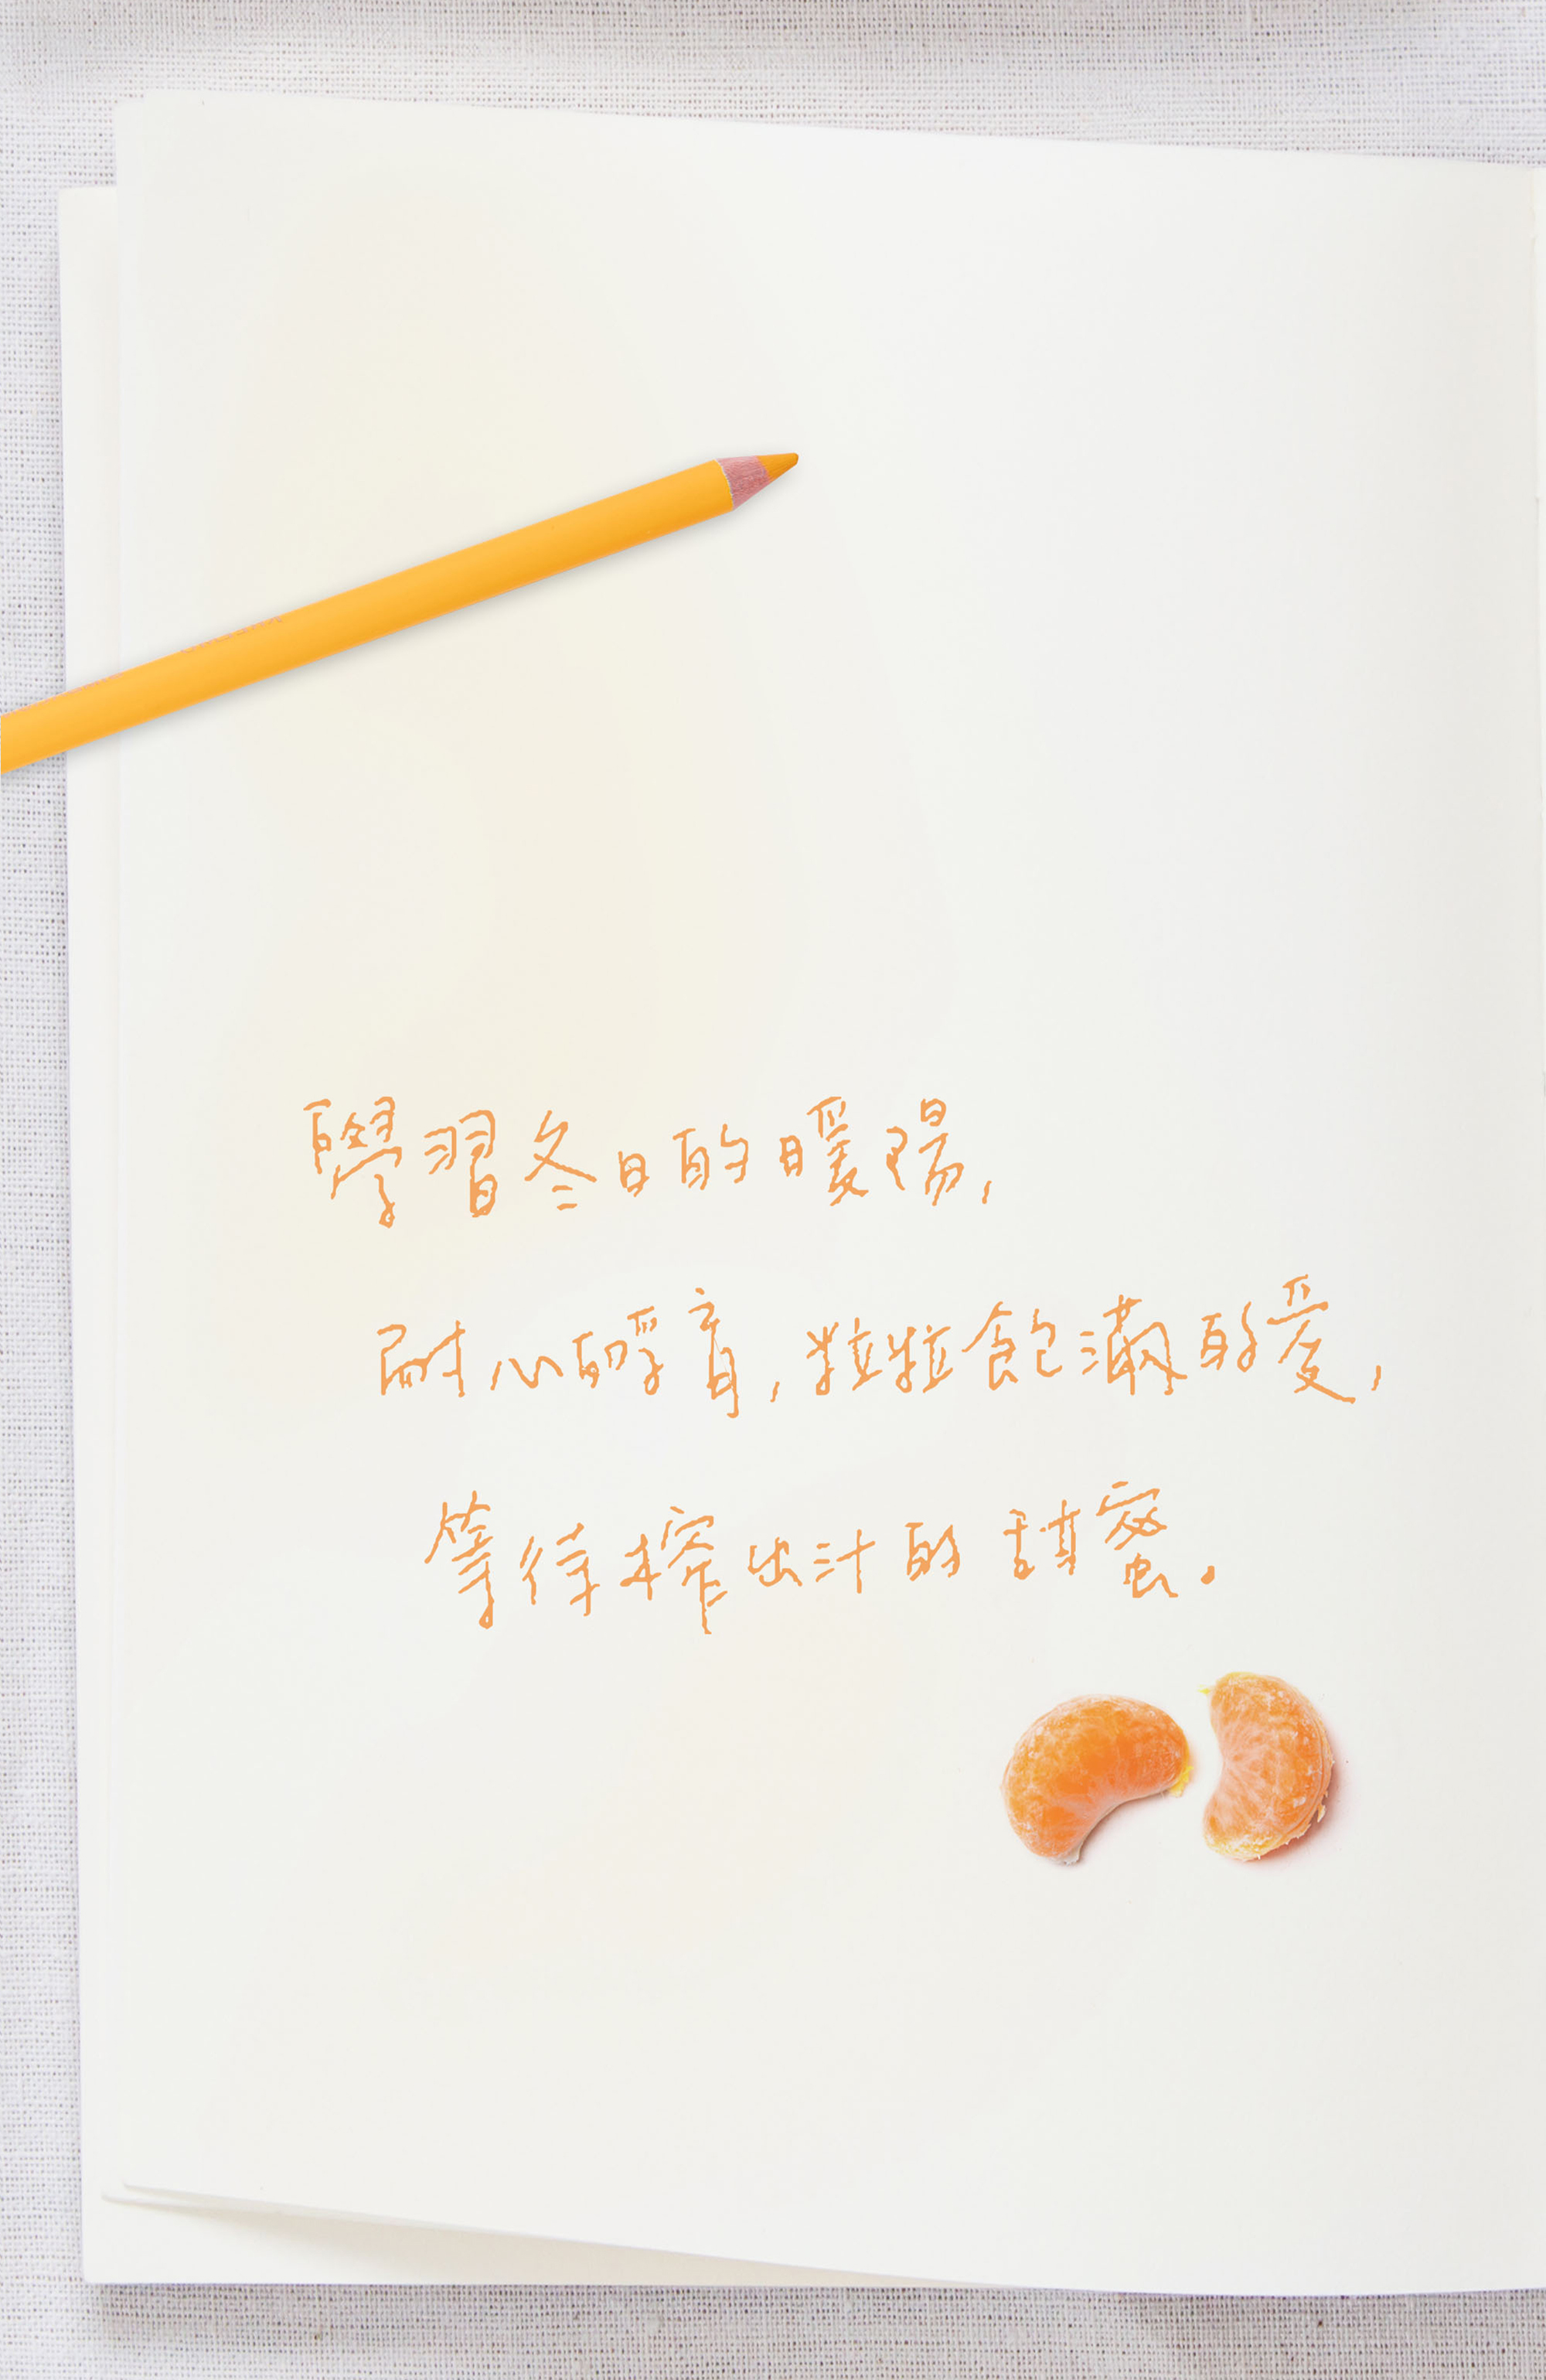 學習冬日的暖陽,
耐心的孵育,粒粒飽滿的愛,
等待榨出汁的甜蜜.